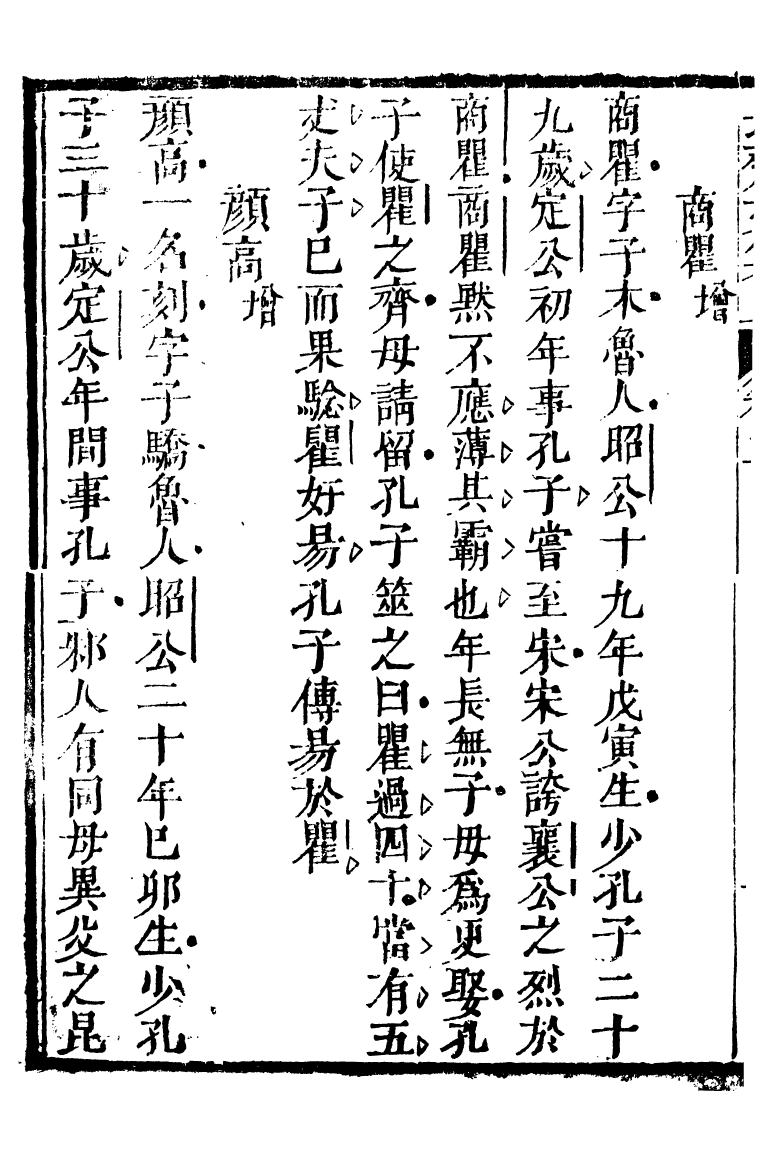 商瞿增
商瞿字子木魯人昭公十九年戊寅生少孔子二十
九歲定公初年事孔子嘗至宋宋公誇襄公之烈於
商瞿商瞿默不應薄其霸也年長無子母爲更娶孔
子使瞿之齊母請留孔子筮之曰瞿過四十當有五
丈夫子已而果驗瞿好易孔子傳易於瞿
顔高增
顔高一名刻字子驕魯人昭公二十年巳卯生少孔
子三十歲定公年間事孔子邾人有同母異父之昆